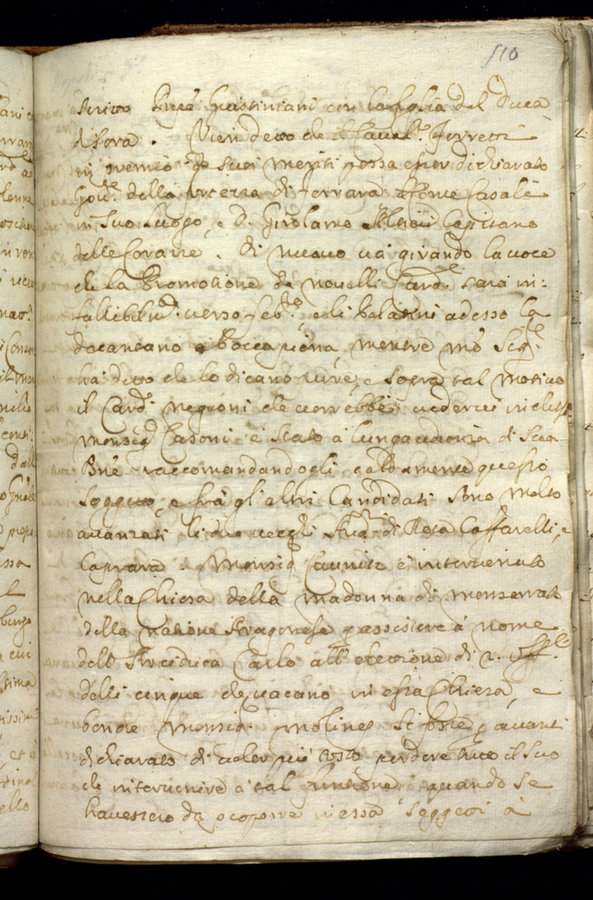 110
Giustiniani con la figlia del Duca
di Sora. Vien detto che il Caval.e Ferretti
in premio de suoi meriti possa esser dichiarato
Gov.e della fortezza di Ferrara, e Casali
in suo luogo, e D. Girolamo Capitano
delle Corazze. Di nuovo và girando la voce
che la Promotione de novelli Card.i sarà in:
fallibilm.te verso Feb.o, e li Palatini adesso la
à bocca piena, mentre
hà detto che lo dicano pure, e sopra tal motivo
il Card. Negroni che vorrebbe vederci
Monsig. Casoni è stato à lunga udienza di Sua
Bne raccomandandogli caldamente questo
soggetto, e frà gl'altri Candidati sono molto
avanzati li due di Rota Caffarelli, e
Caprara. Monsig. è intervenuto
nella Chiesa della Madonna di Monserrato
della natione Aragonese p assistere à nome
dell'Arciduca Carlo all'elezione di 2.
delli cinque che vacano in essa Chiesa, e
benche Monsig. Molines si fosse p avanti
dichiarato di voler più tosto perdere il suo
che intervenire à tal funtione, quando se
havessero da proporre in essa soggetti à